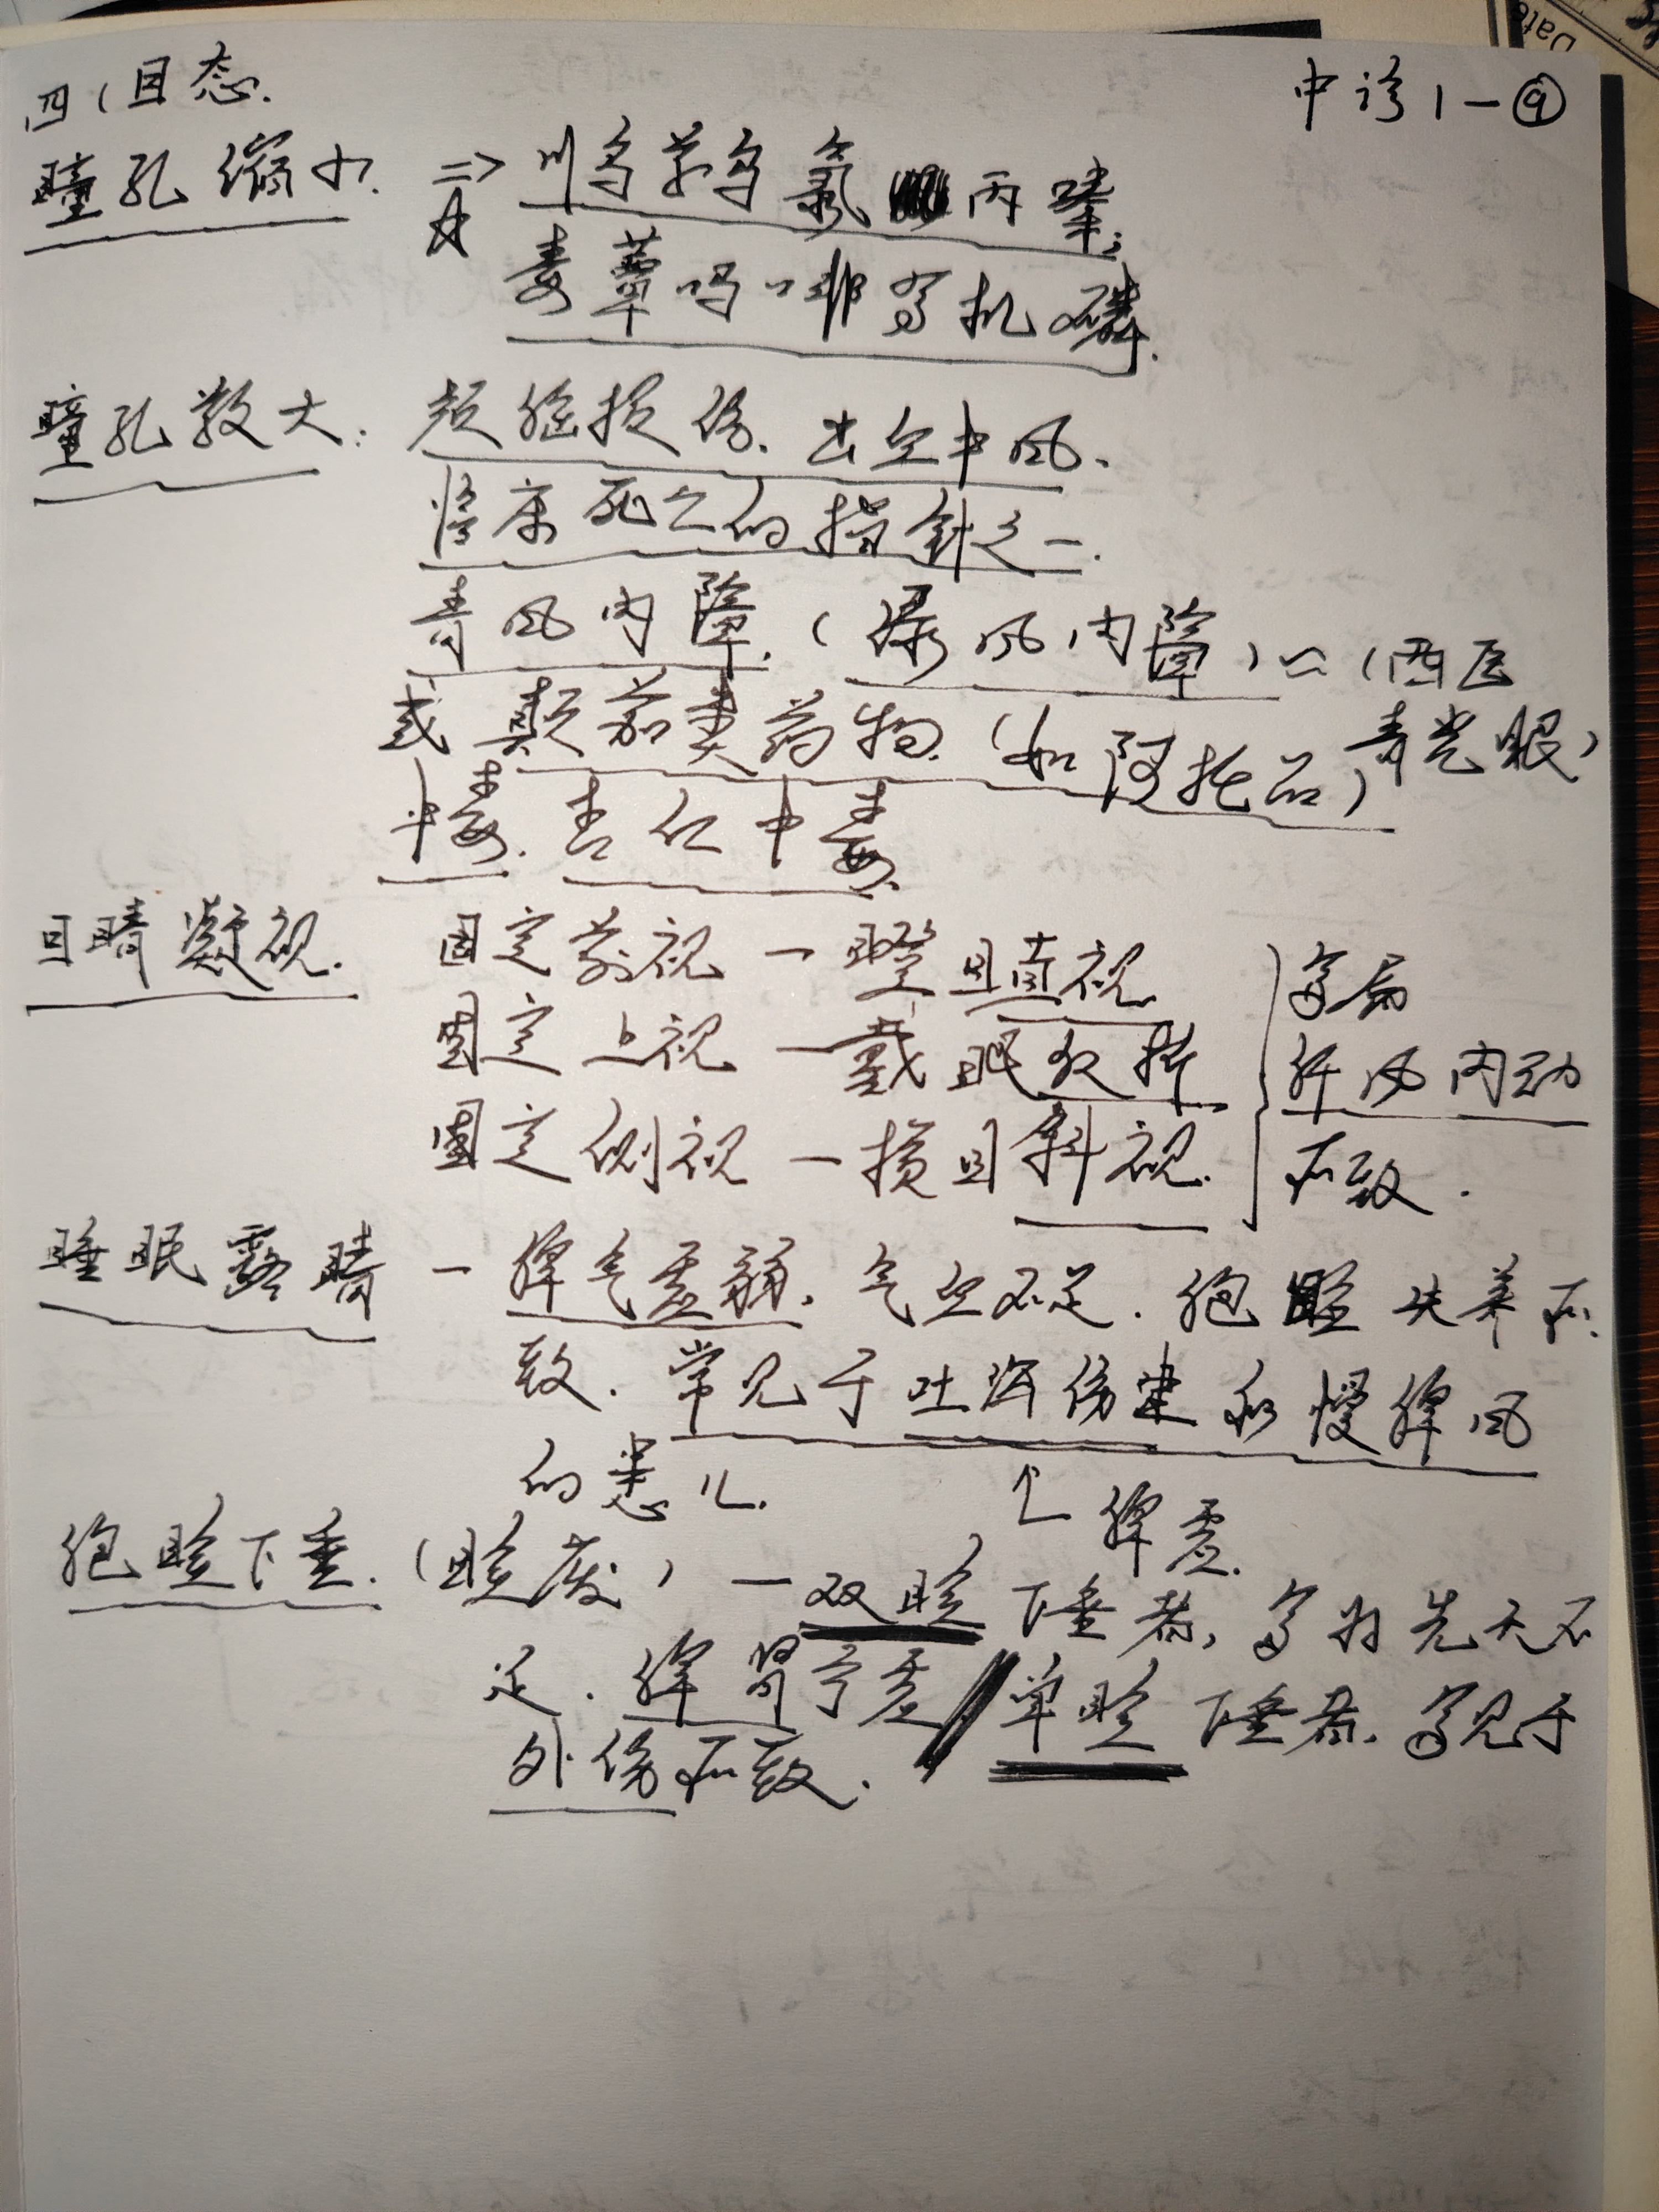 四、目态.
中诊1-⑨
瞳孔缩小. => 川乌草乌氯丙嗪;
毒蕈吗啡有机磷.
瞳孔散大: 颅脑损伤. 出血中风.
临床死亡的指针之一.
青风内障.(绿风内障)≈(西医
青光眼)
或颠茄类药物.(如阿托品)
中毒. 杏仁中毒.
目睛凝视. 固定前视 - 瞪目直视
固定上视 - 戴眼反折
固定侧视 - 横目斜视.
多属
肝风内动
所致.
睡眠露睛 - 脾气虚弱. 气血不足. 胞睑失养所
致. 常见于吐泻伤津和慢脾风
的患儿. 脾虚.
胞睑下垂.(睑废) - 双睑下垂者, 多为先天不
足. 脾肾亏虚 / 单睑下垂者. 多见于
外伤所致.
Date